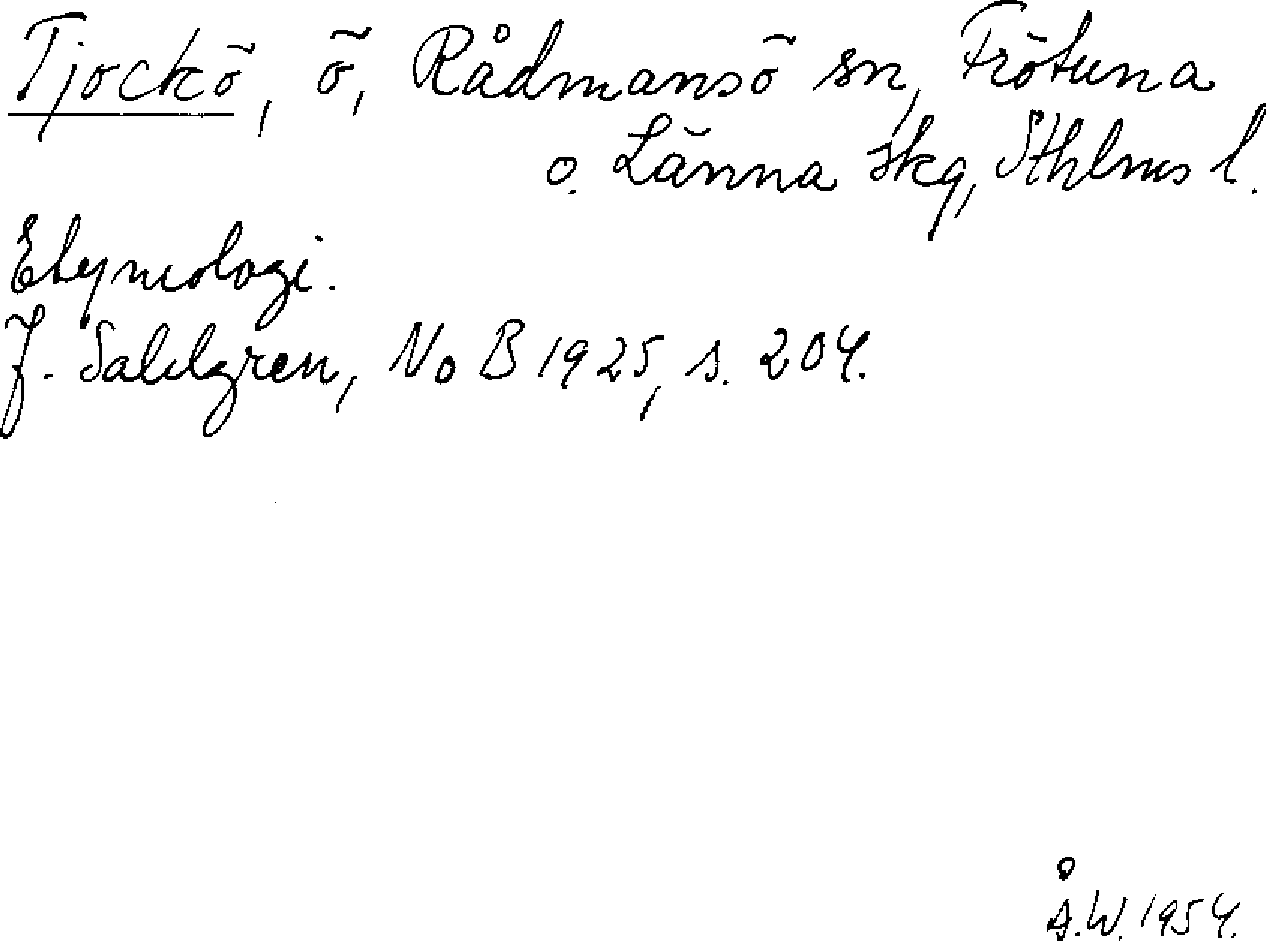 Tjockö, ö, Rådmansö sn, Frötuna
o. Länna skg, Sthlms l.
Etymologi.
J. Sahlgren, NoB 1925, s. 204.
Å.W. 1954.